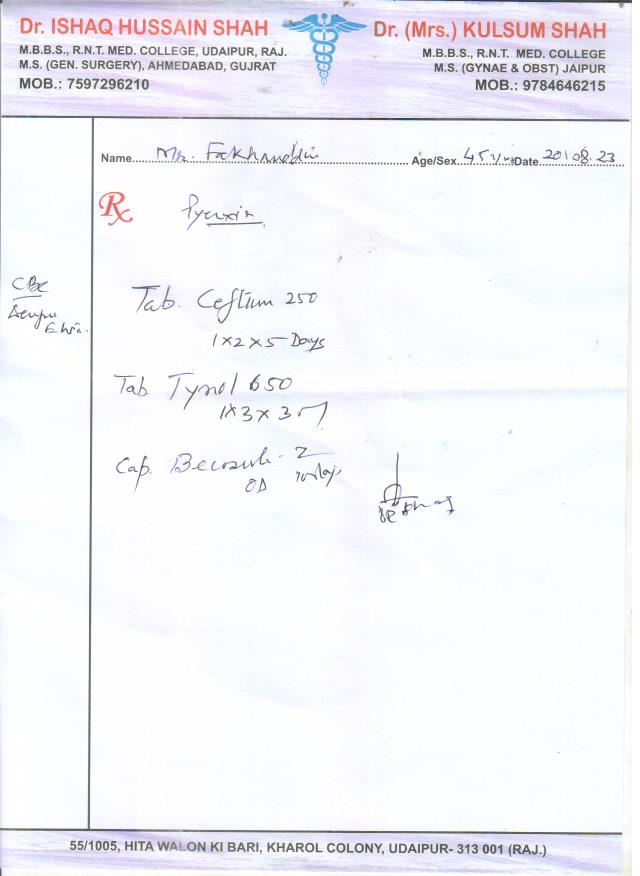 Dr. ISHAQ HUSSAIN SHAH
M.B.B.S., R.N.T. MED. COLLEGE, UDAIPUR, RAJ.
M.S. (GEN. SURGERY), AHMEDABAD, GUJRAT
MOB.: 7597296210
Dr. (Mrs.) KULSUM SHAH
M.B.B.S., R.N.T. MED. COLLEGE
M.S. (GYNAE & OBST) JAIPUR
MOB.: 9784646215
Name Mr. Fakhruddin Age/Sex 45 Date 20/08.23
Rx
CBC
Tab. Ceftum 250
1x2x5 Days
Tab 650
1x3x3
Cap. Z
OD
55/1005, HITA WALON KI BARI, KHAROL COLONY, UDAIPUR- 313 001 (RAJ.)